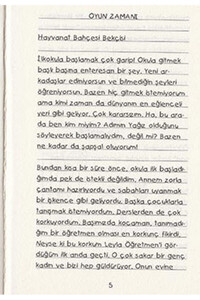 OYUN ZAMANI
Hayvanat Bahçesi Bekçisi
İlkokula başlamak çok garip! Okula gitmek
başlı başına enteresan bir şey. Yeni ar-
kadaşlar ediniyorsun ve bilmediğin şeyleri
öğreniyorsun. Bazen hiç gitmek istemiyorum
ama kimi zaman da dünyanın en eğlenceli
yeri gibi geliyor. Çok kararsızım. Ha, bu ara-
da ben kim miyim? Adımın Yağız olduğunu
söyleyerek başlamalıydım, değil mi? Bazen
ne kadar da şapşal oluyorum!
Bundan kısa bir süre önce, okula ilk başladı-
ğımda pek de istekli değildim. Annem zorla
çantamı hazırlıyordu ve sabahları uyanmak
bir işkence gibi geliyordu. Başka çocuklarla
tanışmak istemiyordum. Derslerden de çok
korkuyordum. Başımda kocaman, tanımadı-
ğım bir öğretmen olması en korkunç fikirdi.
Neyse ki bu korkum Leyla Öğretmen'i gör-
düğüm ilk anda geçti. O çok şakar bir genç
kadın ve bizi hep güldürüyor. Onun evine
5